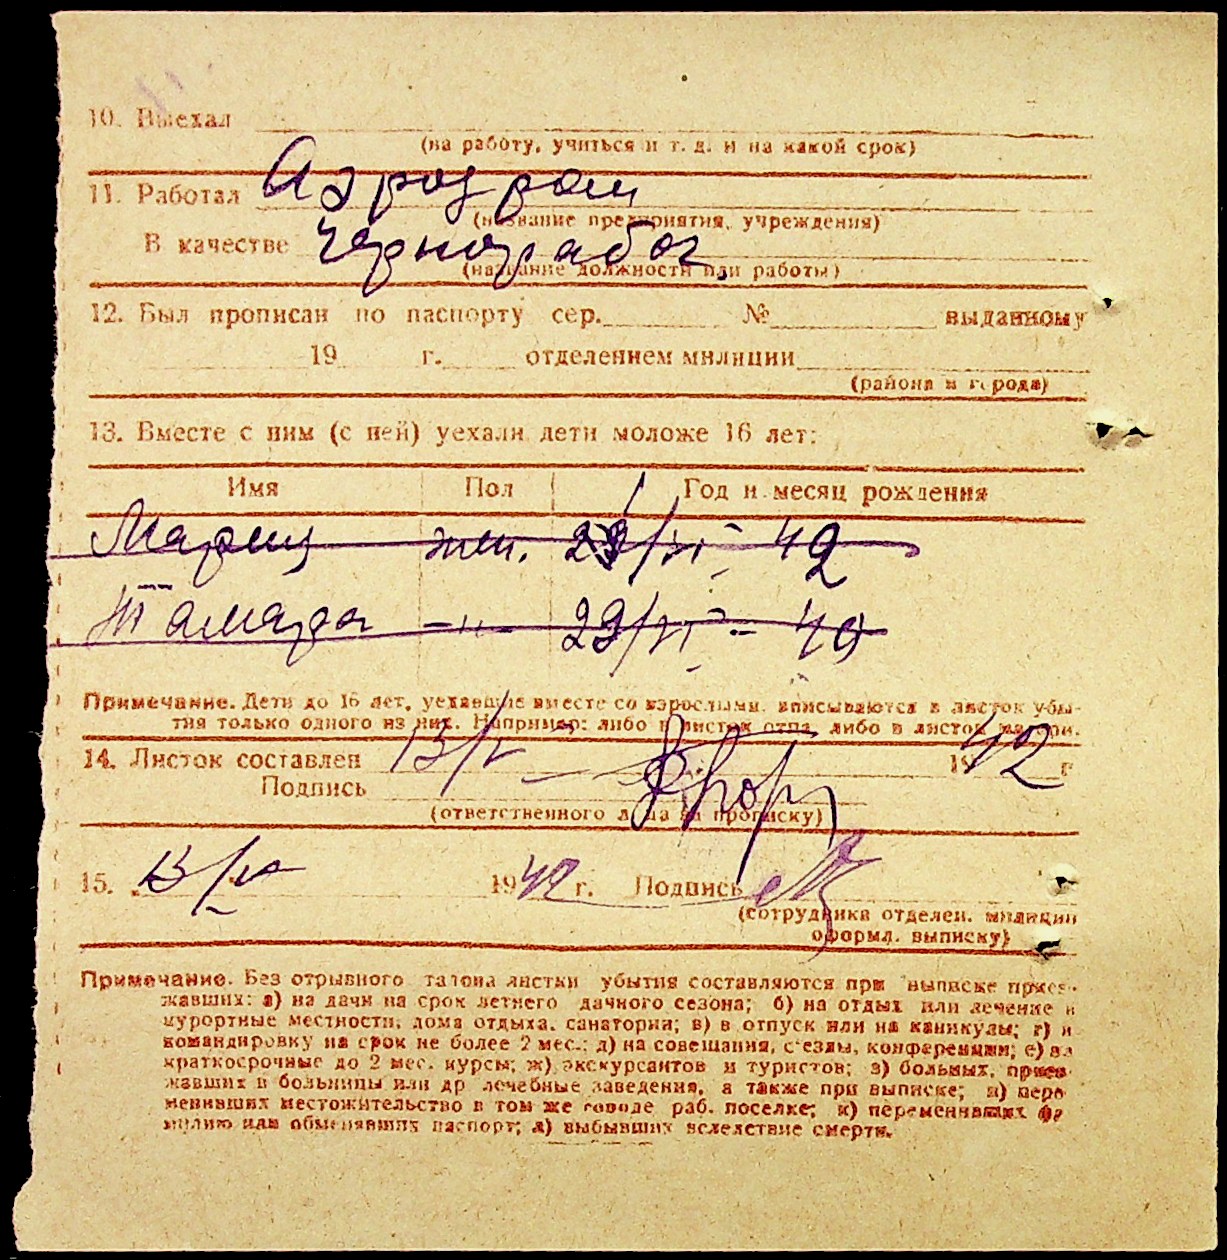 10. Выехал
(на работу, учиться и т. д. и на какой срок)
11. Работал Аэродром
(название предприятия, учреждения)
В качестве Чернорабоч.
(название должности или работы)
12. Был прописан по паспорту сер. № выданному
19 г. отделением милиции
(района и города)
13. Вместе с ним (с ней) уехали дети моложе 16 лет:
Имя Пол Год и месяц рождения
Мария жен. 23/VI - 42
Тамара -"- 23/VI - 40
Примечание. Дети до 16 лет, уехавшие вместе со взрослыми, вписываются в листок убы-
тия только одного из них. Например: либо в листок отца, либо в листок матери.
14. Листок составлен 13/V - 1942 г
Подпись
(ответственного лица за прописку)
15. 13/V 1942 г. Подпись
(сотрудника отделен. милиции
оформл. выписку)
Примечание. Без отрывного талона листки убытия составляются при выписке приез-
жавших: а) на дачи на срок летнего дачного сезона; б) на отдых или лечение в
курортные местности, дома отдыха, санатории; в) в отпуск или на каникулы; г) в
командировку на срок не более 2 мес.; д) на совещания, с'езды, конференции; е) на
краткосрочные до 2 мес. курсы; ж) экскурсантов и туристов; з) больных, приез-
жавших в больницы или др лечебные заведения, а также при выписке; и) пере
менивших местожительство в том же городе, раб. поселке; к) переменивших фа
милию или обменявших паспорт; л) выбывших вследствие смерти.